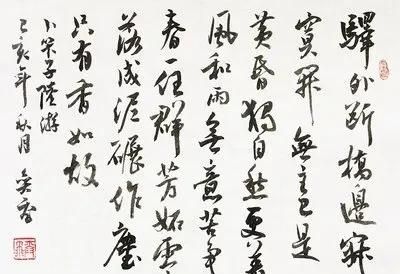 驛外斷橋邊寂
寞開無主已是
黃昏獨自愁更著
風和雨無意苦爭
春一任群芳妬零
落成泥碾作塵
只有香如故
卜算子陸游
己亥年秋月